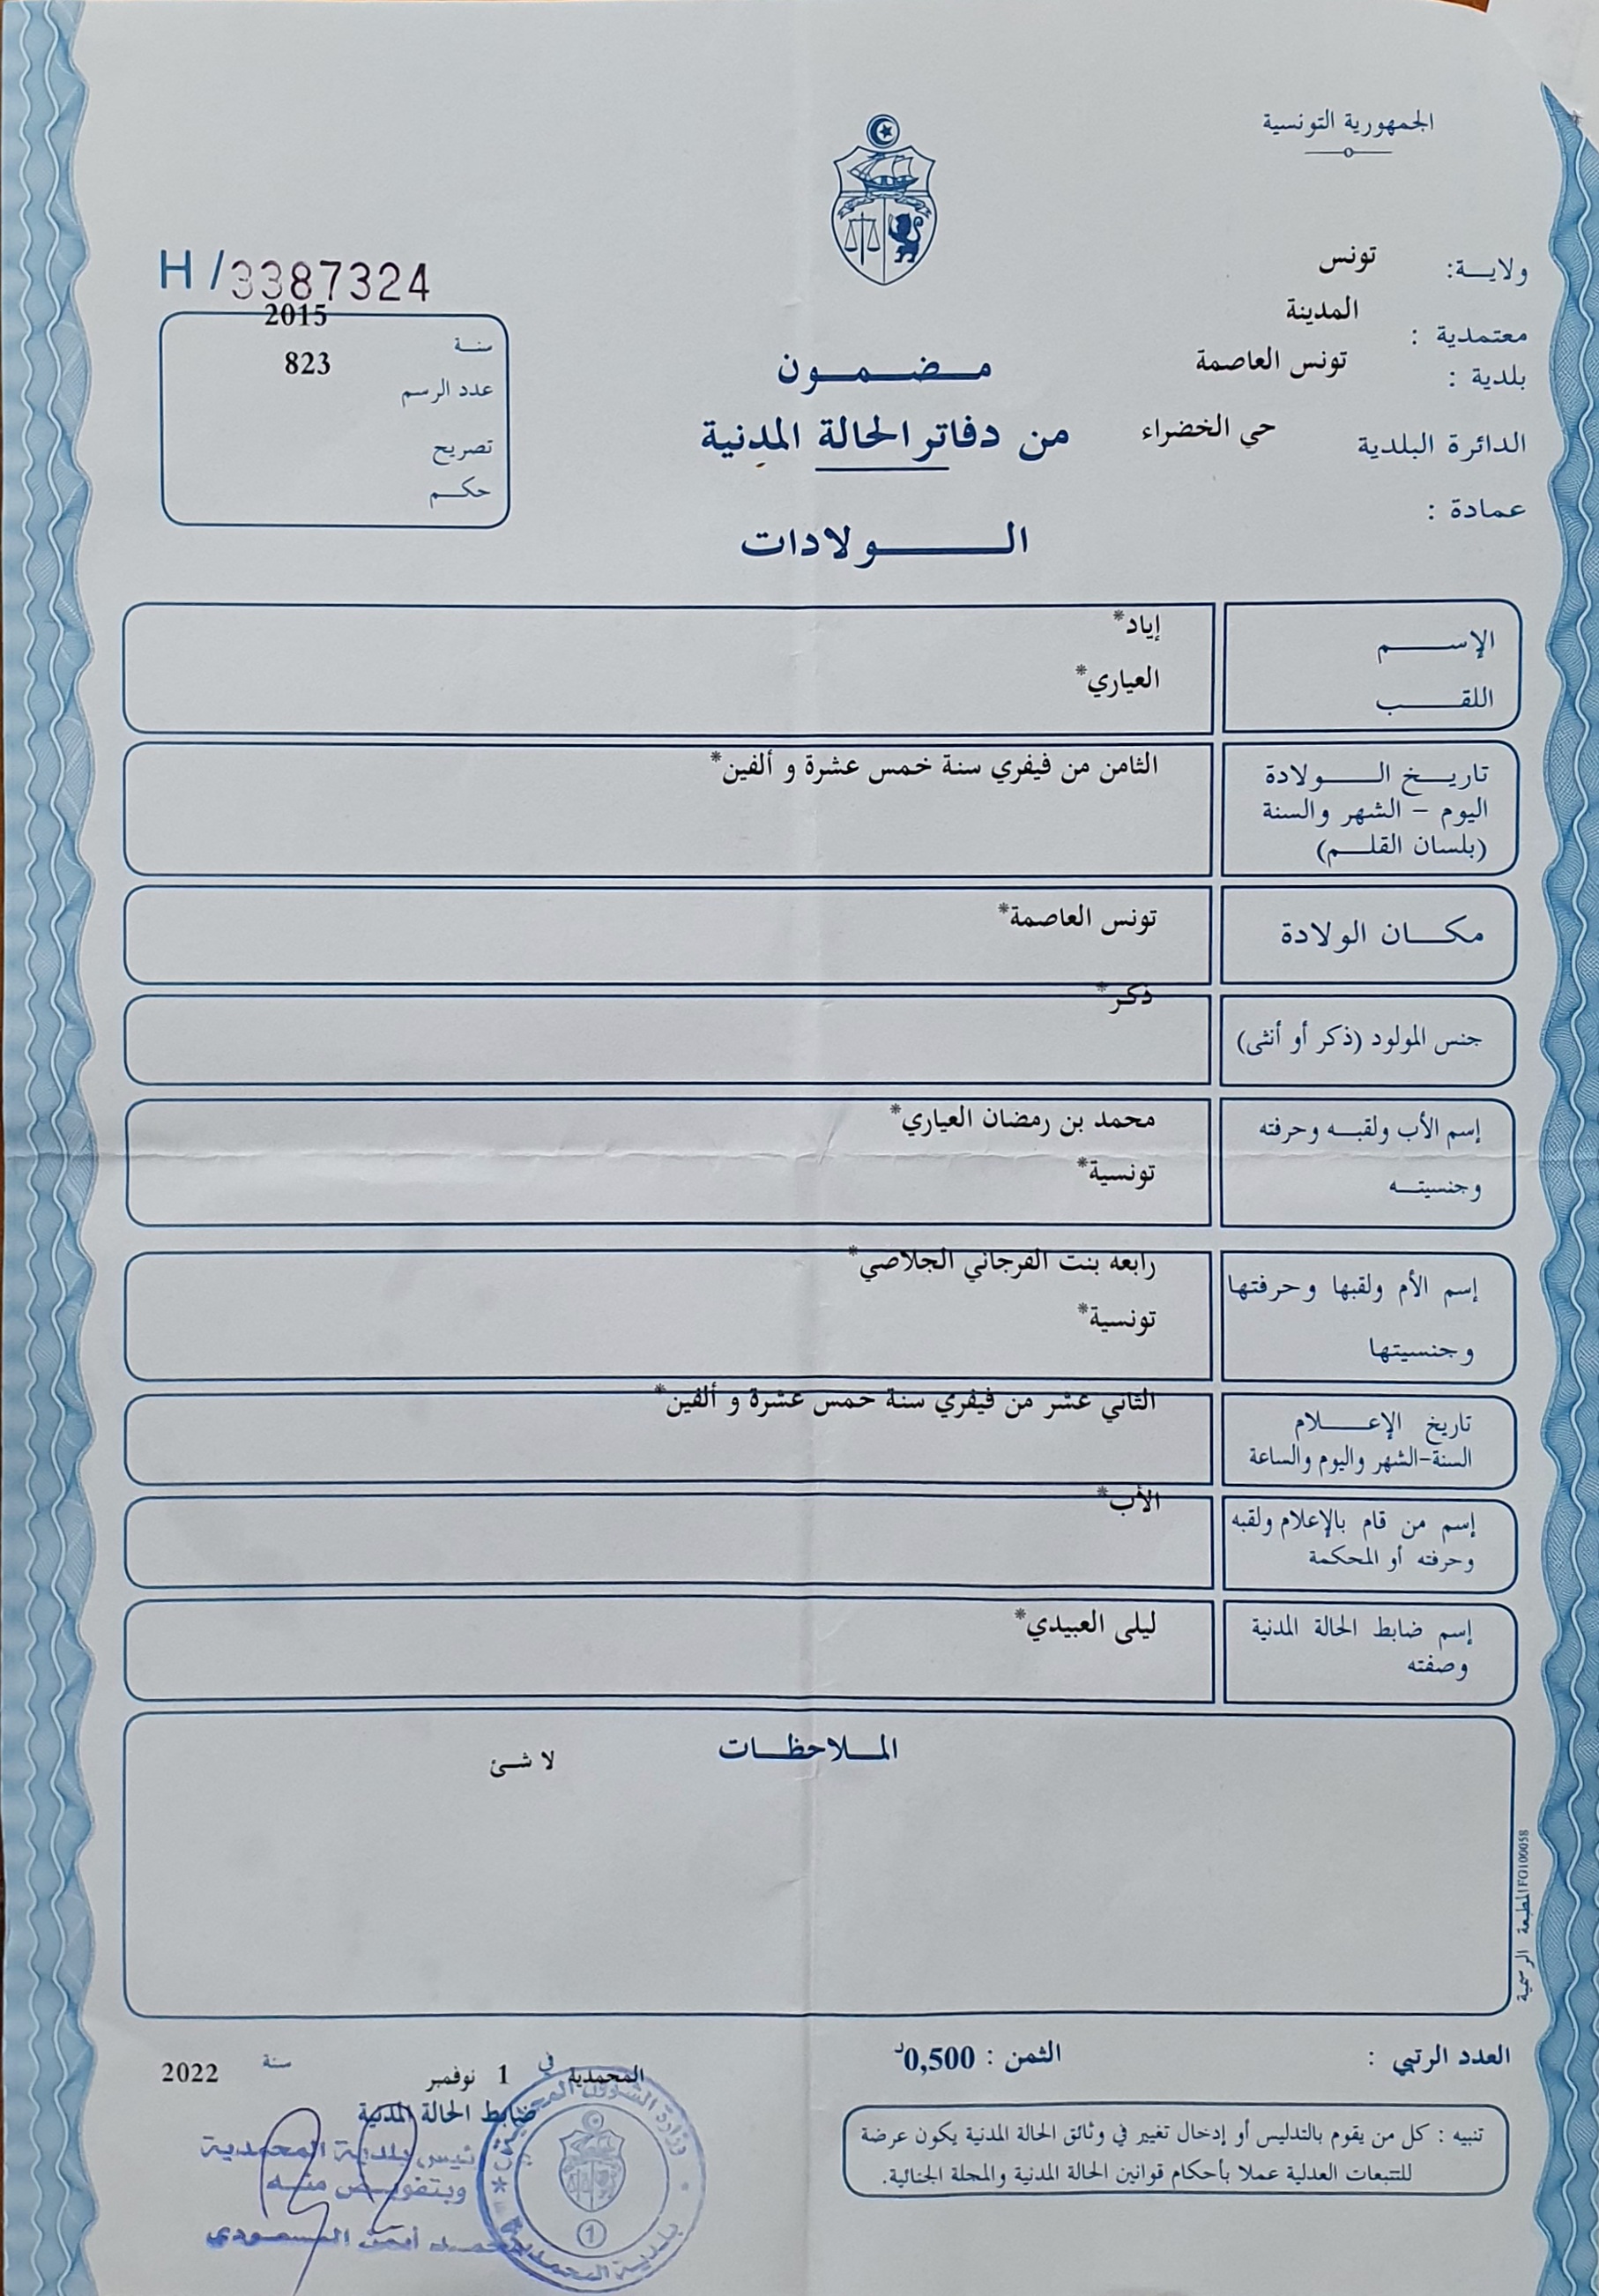 الجمهورية التونسية
ولاية: تونس
معتمدية : المدينة
بلدية : تونس العاصمة
الدائرة البلدية حي الخضراء
عمادة :
H/3387324
سنة 2015
عدد الرسم 823
تصريح
حكم
مضمون
من دفاتر الحالة المدنية
الولادات
الإسم إياد*
اللقب العياري*
تاريخ الولادة الثامن من فيفري سنة خمس عشرة و ألفين*
اليوم - الشهر والسنة
(بلسان القلم)
مكان الولادة تونس العاصمة*
جنس المولود (ذكر أو أنثى) ذكر*
إسم الأب ولقبه وحرفته محمد بن رمضان العياري*
وجنسيته تونسية*
إسم الأم ولقبها وحرفتها رابعه بنت الفرجاني الجلاصي*
وجنسيتها تونسية*
تاريخ الإعلام الثاني عشر من فيفري سنة خمس عشرة و ألفين*
السنة-الشهر واليوم والساعة
إسم من قام بالإعلام ولقبه الأب*
وحرفته أو المحكمة
إسم ضابط الحالة المدنية ليلى العبيدي*
وصفته
الملاحظات
لا شئ
المطبعة الرسمية FO100058
العدد الرتبي :
الثمن : 0,500د
تنبيه : كل من يقوم بالتدليس أو إدخال تغيير في وثائق الحالة المدنية يكون عرضة
للتتبعات العدلية عملا بأحكام قوانين الحالة المدنية والمجلة الجنائية.
المحمدية في 1 نوفمبر سنة 2022
ضابط الحالة المدنية
رئيس بلدية المحمدية
وبتفويض منه
محمد أيمن المسعودي
وزارة الشؤون المحلية
بلدية المحمدية
1